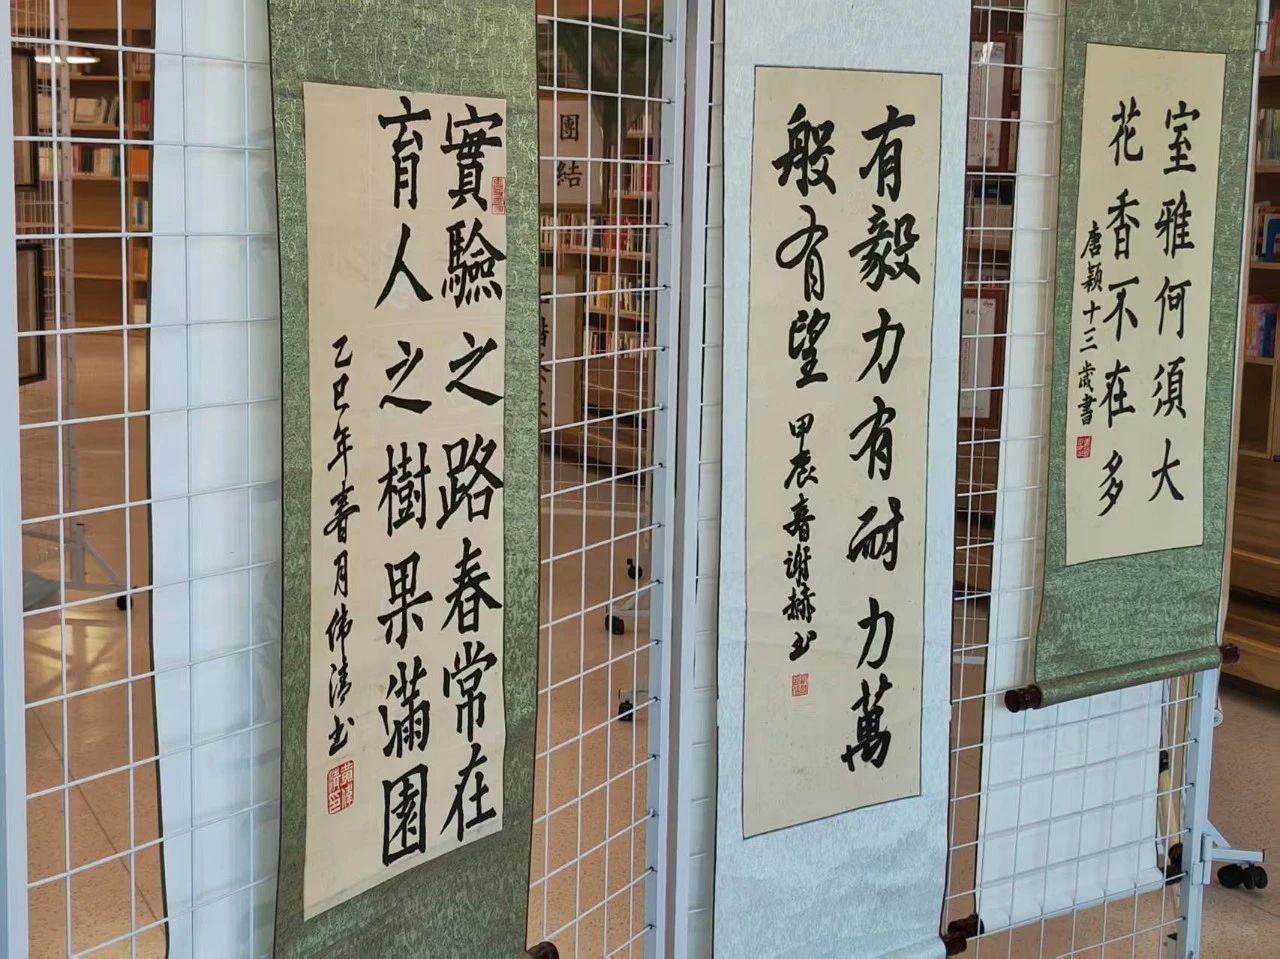 實驗之路春常在
育人之樹果滿園
乙巳年春月偉清书
有毅力有耐力萬
般有望
甲辰春谢赫书
室雅何須大
花香不在多
唐颖十三歲書
團結